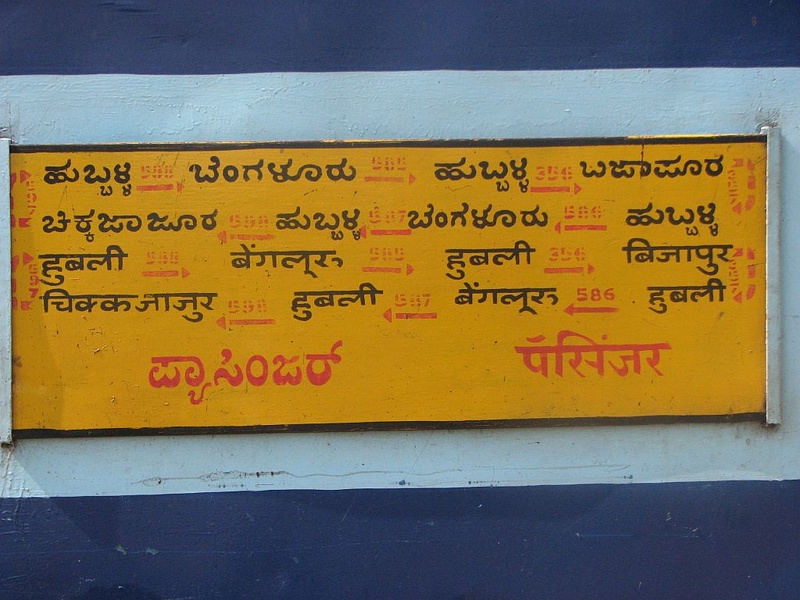 ಹುಬ್ಬಳ್ಳಿ 588 ಬೆಂಗಳೂರು 585 ಹುಬ್ಬಳ್ಳಿ 356 ಬಿಜಾಪೂರ
ಚಿಕ್ಕಜಾಜೂರ 598 ಹುಬ್ಬಳ್ಳಿ 587 ಬೆಂಗಳೂರು 586 ಹುಬ್ಬಳ್ಳಿ
हुबली 588 बेंगलूरु 585 हुबली 356 बिजापुर
चिक्कजाजुर 598 हुबली 587 बेंगलूरु 586 हुबली
ಪ್ಯಾಸಿಂಜರ್ पॅसिंजर